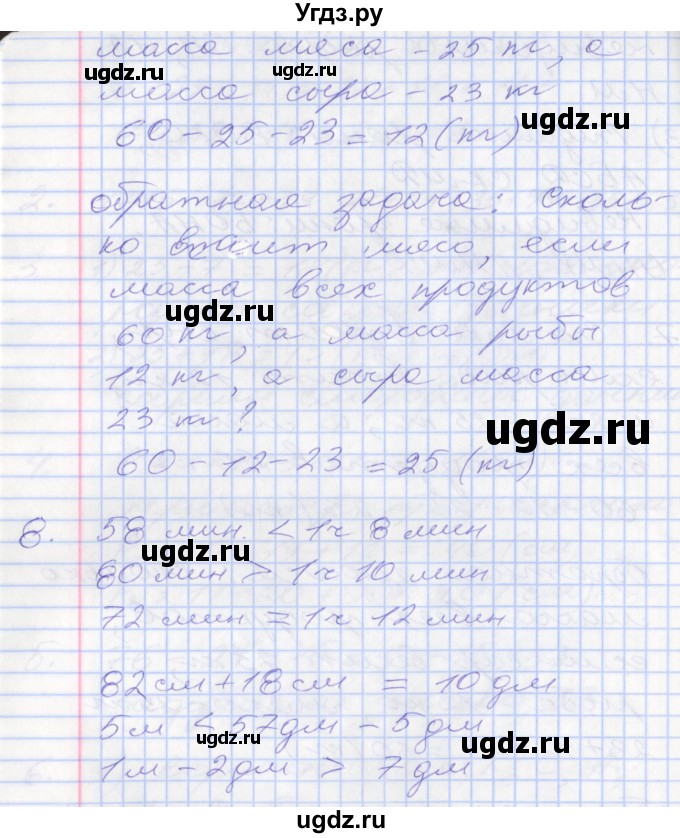 Угдз.ру
масса мяса - 25 кг, а
ugdz.ru ugdz.ru
масса сыра - 23 кг
ugdz.ru
60 - 25 - 23 = 12 (кг)
обратная задача: сколь-
ко весит мясо, если
масса всех продуктов
ugdz.ru
60 кг, а масса рыбы
12 кг, а сыра масса
23 кг?
ugdz.ru
60 - 12 - 23 = 25 (кг)
8. 58 мин. < 1 ч 8 мин
ugdz.ru
80 мин > 1 ч 10 мин
72 мин = 1 ч 12 мин
82 см + 18 см = 10 дм
5 м < 57 дм - 5 дм
ugdz.ru ugdz.ru
1 м - 2 дм > 7 дм
ugdz.ru ugdz.ru